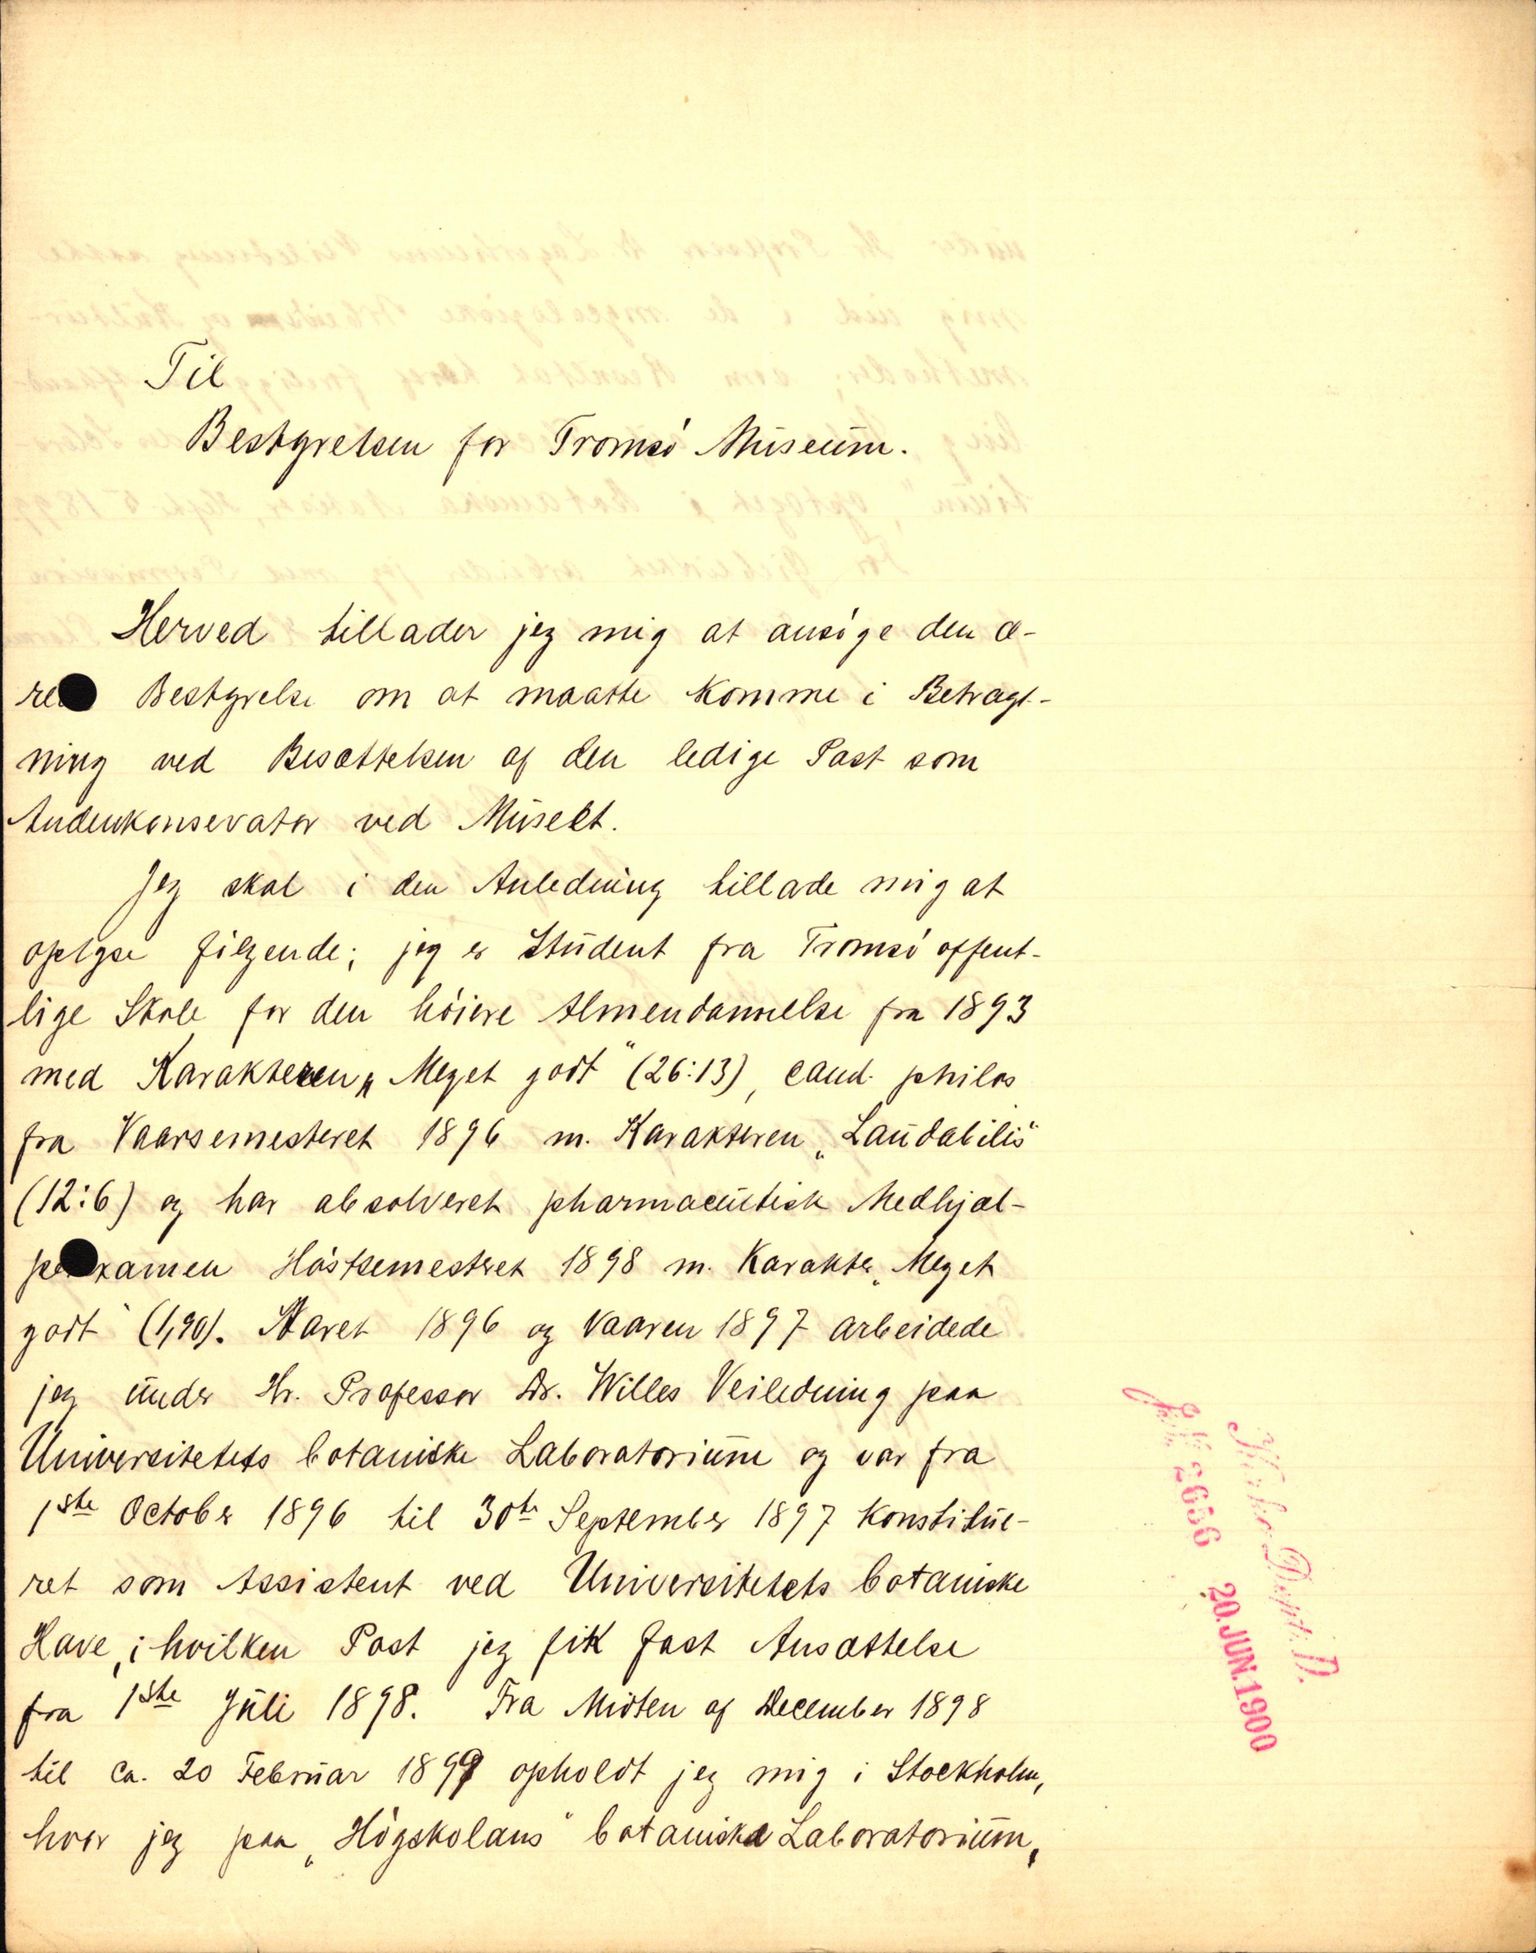 Til
Bestyrelsen for Tromsö Museum.
Herved tillader jeg mig at ansöge den æ-
rede Bestyrelse om at maatte komme i Betragt-
ning ved Besættelsen af den ledige Post som
Andenkonservator ved Museet.
Jeg skal i den Anledning tillade mig at
oplyse fölgende; jeg er Student fra Tromsö offent-
lige Skole for den höiere Almendannelse fra 1893
med Karakteren „Meget godt“ (26:13), cand. philos
fra Vaarsemesteret 1896 m. Karakteren „Laudabilis“
(12:6) og har absolveret pharmaceutisk Medhjæl-
perexamen Höstsemesteret 1898 m. Karakter „Meget
godt“ (1,90). Aaret 1896 og Vaaren 1897 arbeidede
jeg under Hr. Professor Dr. Willes Veiledning paa
Universitetets botaniske Laboratorium og var fra
1ste October 1896 til 30te September 1897 konstitue-
ret som Assistent ved Universitetets botaniske
Have, i hvilken Post jeg fik fast Ansættelse
fra 1ste Juli 1898. Fra Midten af December 1898
til ca. 20 Februar 1899 opholdt jeg mig i Stockholm,
hvor jeg paa „Högskolans“ botaniska Laboratorium,
Kirke Dept. D.
J.№ 2656 20.JUN.1900